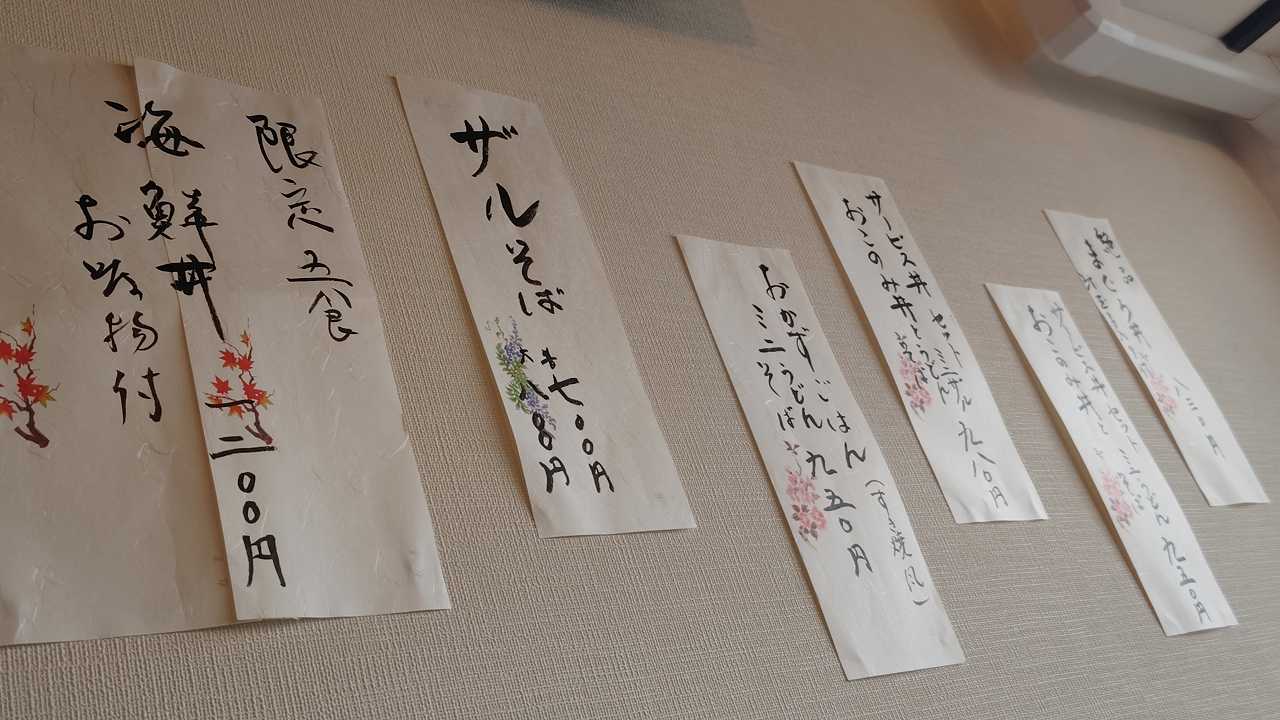 限定五食
海鮮丼
一二〇〇円
お吸物付
ザルそば
大 八〇〇円
七〇〇円
おかずごはん(すき焼風)
ミニうどん
そば
九五〇円
サービス丼セットミニザル
おこのみ丼とうどん
そば
九八〇円
サービス丼セットミニうどん
おこのみ丼と
九五〇円
まぐろ丼
八三〇円